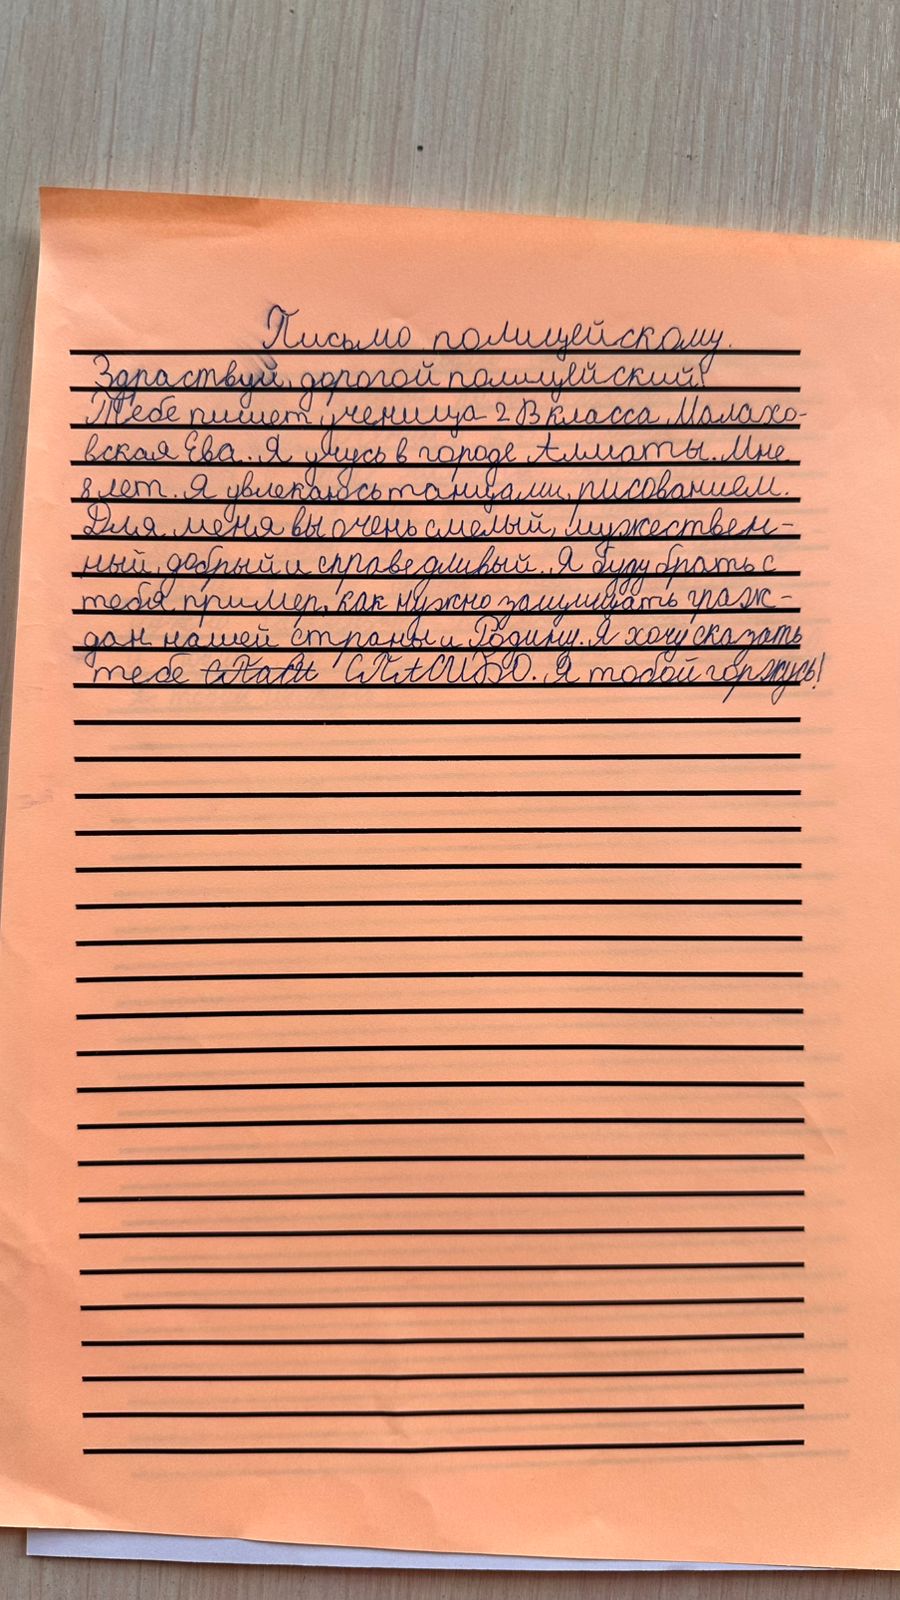 Письмо полицейскому.
Здраствуй, дорогой полицейский!
Тебе пишет ученица 2 В класса Малахо-
вская Ева. Я учусь в городе Алматы. Мне
8 лет. Я увлекаюсь танцами, рисованием.
Для меня вы очень смелый, мужествен-
ный, добрый и справедливый. Я буду брать с
тебя пример, как нужно защищать граж-
дан нашей страны и Родину. Я хочу сказать
тебе СПАСИБО. Я тобой горжусь!